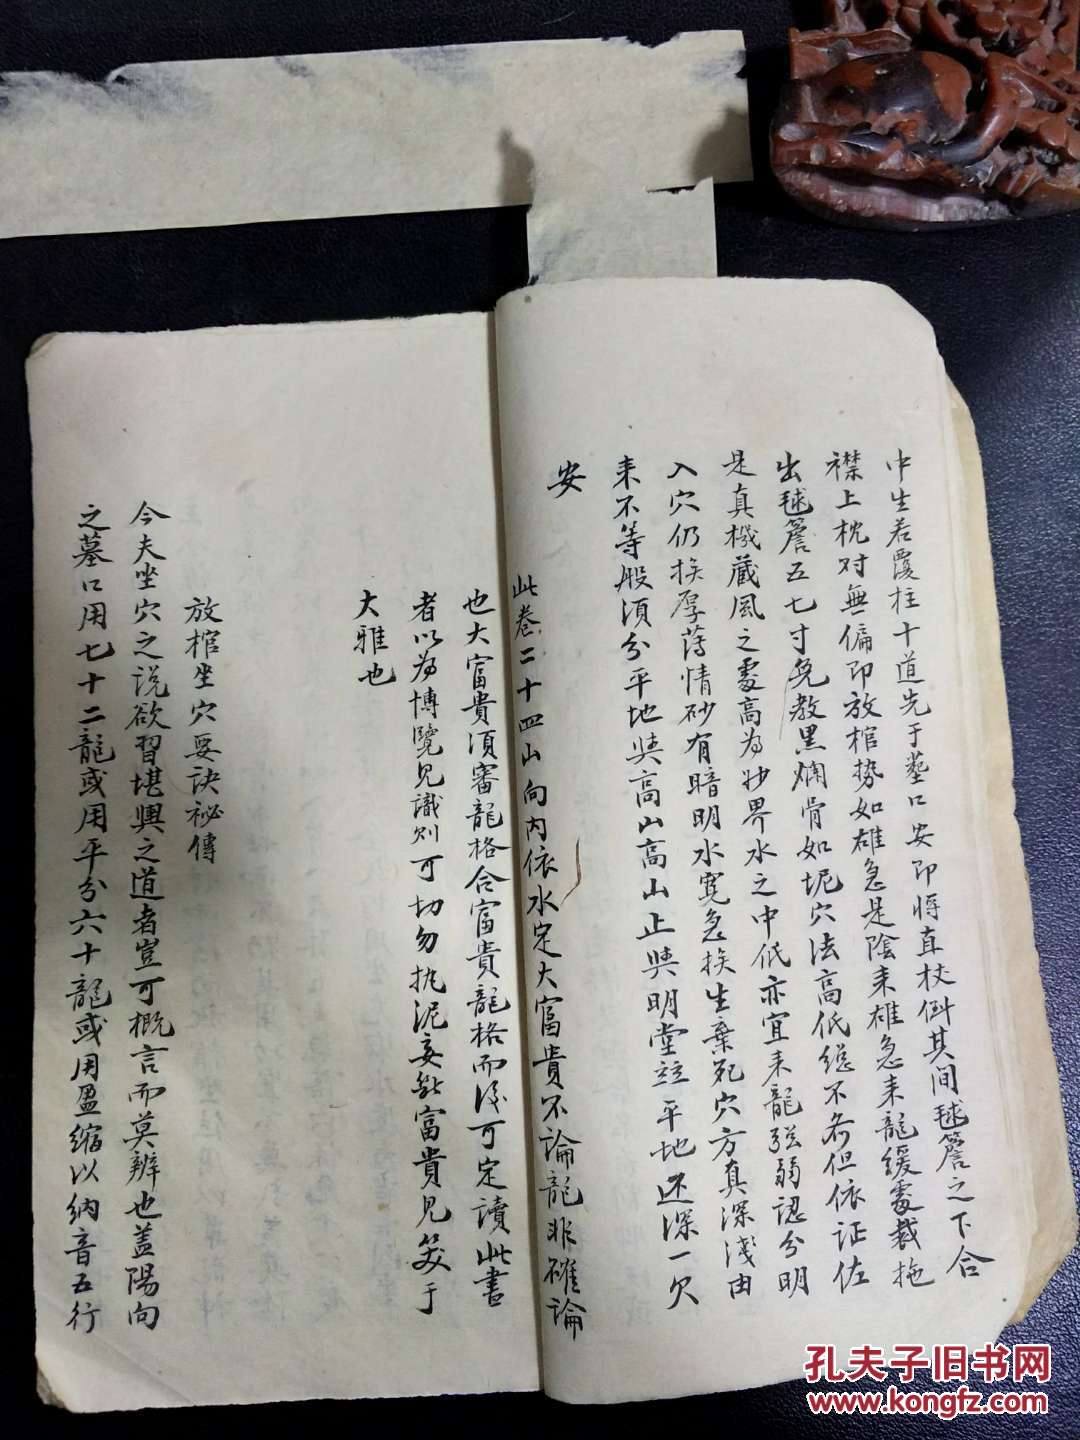 中生若覆柱十道先于塟口安印將直杖倒其間毬簷之下合
襟上枕对無偏印放棺势如雄急是陰来雄急来龍緩處裁拖
出毬簷五七寸免教黑爛骨如坭穴法高低総不为但依证佐
是真機藏風之處高为妙界水之中低亦宜来龍强弱認分明
入穴仍挨厚薄情砂有暗明水寛急挨生棄死穴方真深淺由
来不等般須分平地與高山高山止與明堂並平地还深一欠
安
此卷二十四山向内依水定大富貴不論龍非確論
也大富貴須審龍格合富貴龍格而後可定讀此書
者以为博覽見識则可切勿执泥妄断富貴見笑于
大雅也
放棺坐穴要诀祕傳
今夫坐穴之说欲習堪輿之道者豈可概言而莫辨也盖陽向
之墓口用七十二龍或用平分六十龍或用盈縮以納音五行
孔夫子旧书网
www.kongfz.com